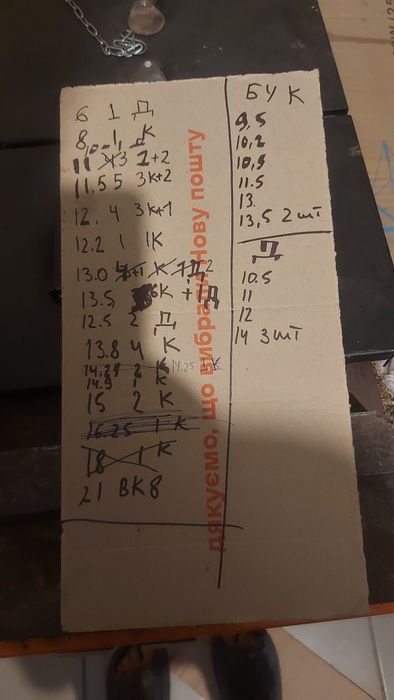 6 1 Д
8,0 1 К
11 3 1+2
11.5 5 3К+2
12. 4 3К+1
12.2 1 1К
13.0
13.5 К +1Д
12.5 2 Д
13.8 4 К
14.25 2 К 14.25 1 К
14.9 1 К
15 2 К
16.25 1 К
18 1 К
21 ВК8
БУК
9,5
10,2
10,5
11.5
13.
13,5 2 шт
Д
10.5
11
12
14 3 шт
дякуємо, що вибрали Нову пошту